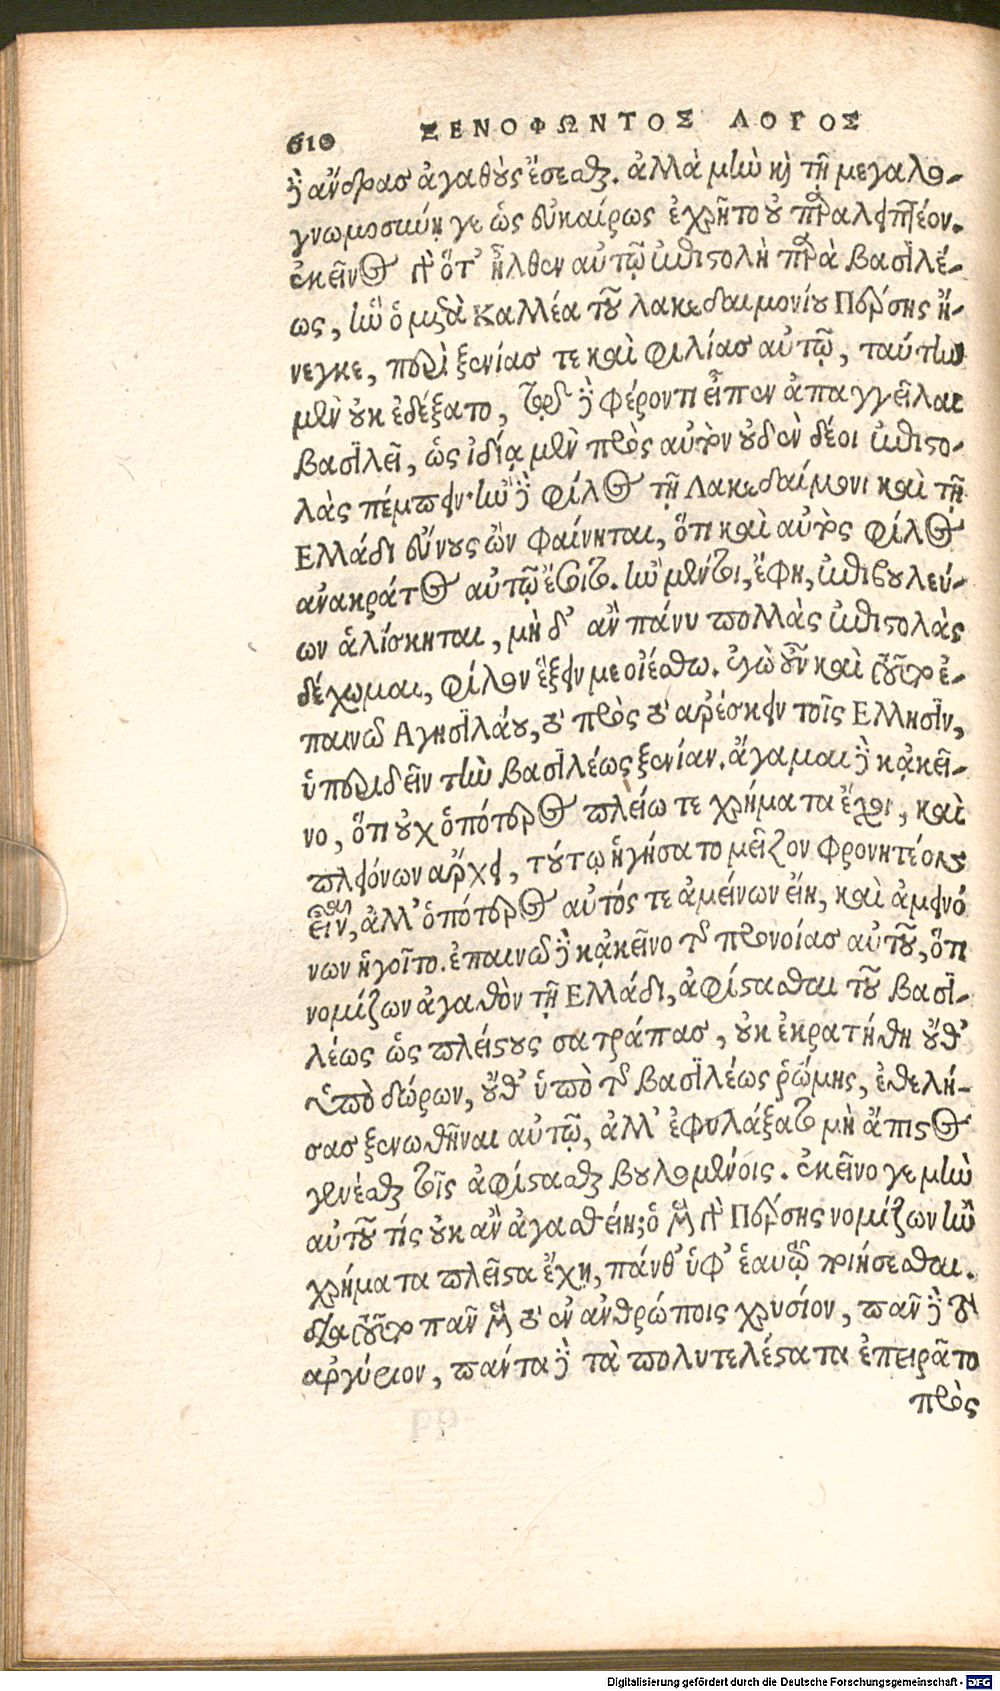 610 ΞΕΝΟΦΩΝΤΟΣ ΛΟΓΟΣ
δὲ ἄνδρας ἀγαθοὺς ἔσεσθαι. ἀλλὰ μὴν καὶ τῇ μεγαλο-
γνωμοσύνῃ γε ὡς εὐκαίρως ἐχρῆτο οὐ παραλειπτέον.
ἐκεῖνος γὰρ ὅτ' ἦλθεν αὐτῷ ἐπιστολὴ παρὰ βασιλέ-
ως, ἣν ὁ μετὰ Καλλέα τοῦ λακεδαιμονίου Πέρσης ἤ-
νεγκε, περὶ ξενίας τε καὶ φιλίας αὐτῷ, ταύτην
μὲν οὐκ ἐδέξατο, τῷ δὲ φέροντι εἶπεν ἀπαγγεῖλαι
βασιλεῖ, ὡς ἰδίᾳ μὲν πρὸς αὐτὸν οὐδὲν δέοι ἐπιστο-
λὰς πέμπειν· ἢν δὲ φίλος τῇ Λακεδαίμονι καὶ τῇ
Ελλάδι εὔνους ὢν φαίνηται, ὅτι καὶ αὐτὸς φίλος
ἀνακράτος αὐτῷ ἔσοιτο. ἢν μέντοι, ἔφη, ἐπιβουλεύ-
ων ἁλίσκηται, μὴ δ' ἂν πάνυ πολλὰς ἐπιστολὰς
δέχωμαι, φίλον ἕξειν με οἰέσθω. ἐγὼ οὖν καὶ τοῦτο ἐ-
παινῶ Αγησιλάου, τὸ πρὸς τὸ ἀρέσκειν τοῖς Ελλησιν,
ὑπεριδεῖν τὴν βασιλέως ξενίαν. ἄγαμαι δὲ κᾀκεῖ-
νο, ὅτι οὐχ ὁπότερος πλείω τε χρήματα ἔχοι, καὶ
πλειόνων ἄρχει, τούτῳ ἡγήσατο μεῖζον φρονητέον
εἶναι, ἀλλ' ὁπότερος αὐτός τε ἀμείνων εἴη, καὶ ἀμεινό
νων ἡγοῖτο. ἐπαινῶ δὲ κᾀκεῖνο τῆς προνοίας αὐτοῦ, ὅτι
νομίζων ἀγαθὸν τῇ Ελλάδι, ἀφίστασθαι τοῦ βασι-
λέως ὡς πλείστους σατράπας, οὐκ ἐκρατήθη οὔθ'
ὑπὸ δώρων, οὔθ' ὑπὸ τῆς βασιλέως ῥώμης, ἐθελή-
σας ξενωθῆναι αὐτῷ, ἀλλ' ἐφυλάξατο μὴ ἄπιστος
γενέσθαι τοῖς ἀφίστασθαι βουλομένοις. ἐκεῖνο γε μὴν
αὐτοῦ τίς οὐκ ἂν ἀγασθείη; ὁ μὲν γὰρ Πέρσης νομίζων ἢν
χρήματα πλεῖστα ἔχῃ, πάνθ' ὑφ' ἑαυτῷ ποιήσεσθαι.
διὰ τοῦτο πᾶν μὲν τὸ ἐν ἀνθρώποις χρυσίον, πᾶν δὲ τὸ
ἀργύριον, πάντα δὲ τὰ πολυτελέστατα ἐπειρᾶτο
πρὸς
Digitalisierung gefördert durch die Deutsche Forschungsgemeinschaft - DFG